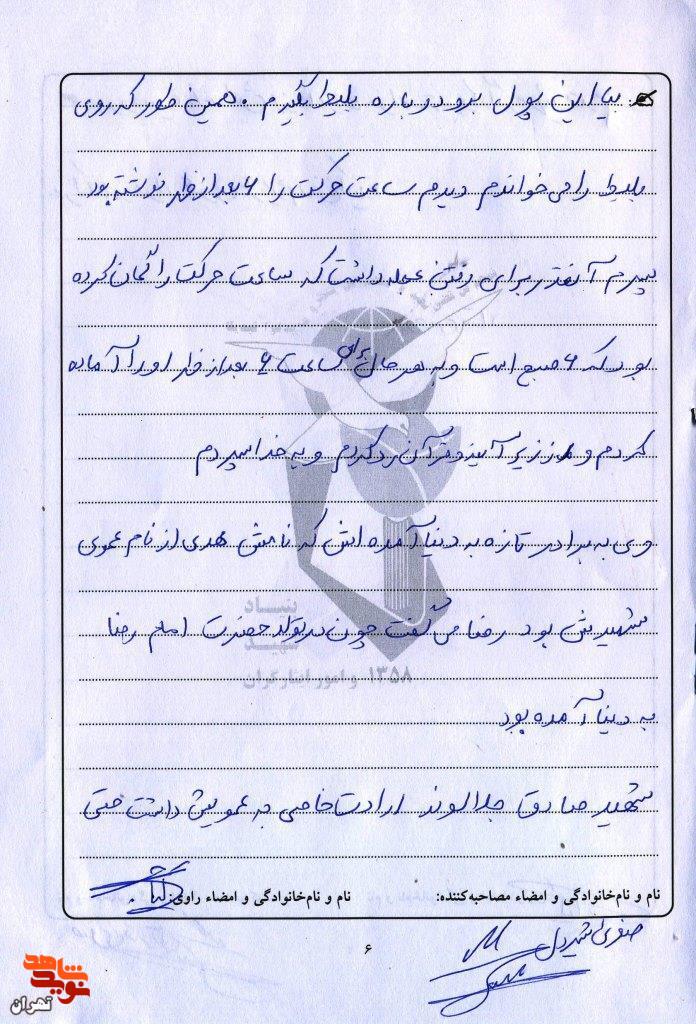 بیا این پول برو دوباره بلیط بگیرم. همین طور که روی
بلیط را می خواندم دیدم ساعت حرکت را ۶ بعدازظهر نوشته بود
پسرم آنقدر برای رفتن عجله داشت که ساعت حرکت را گمان کرده
بود که ۶ صبح است و به هر حال برای ساعت ۶ بعدازظهر او را آماده
کردم و از زیر آینه و قرآن رد کردم و به خدا سپردم
وی به برادر تازه به دنیا آمده اش که نامش هدی از نام عموی
شهیدش بود رضا می گفت چون در تولد حضرت امام رضا
به دنیا آمده بود
شهید صادق جلالوند ارادت خاصی به عمویش داشت حتی
نام و نام‌خانوادگی و امضاء مصاحبه‌کننده: نام و نام‌خانوادگی و امضاء راوی:
۶
بنیاد
شهید
و امور ایثارگران ۱۳۵۸
نوید شاهد
تهران